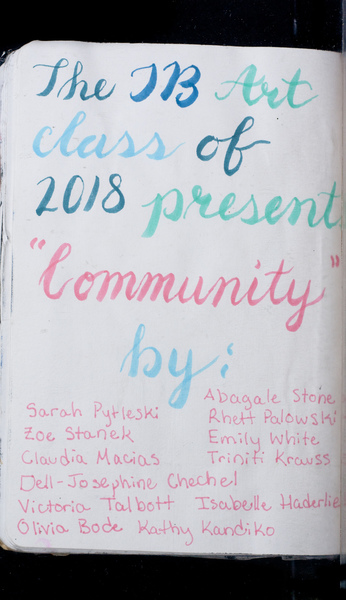 The IB Art
class of
2018 present
"Community"
by:
Abagale Stone
Sarah Pytleski Rhett Palowski
Zoe Stanek Emily White
Claudia Macias Triniti Krauss
Dell-Josephine Chechel
Victoria Talbott Isabelle Haderlie
Olivia Bode Kathy Kandiko